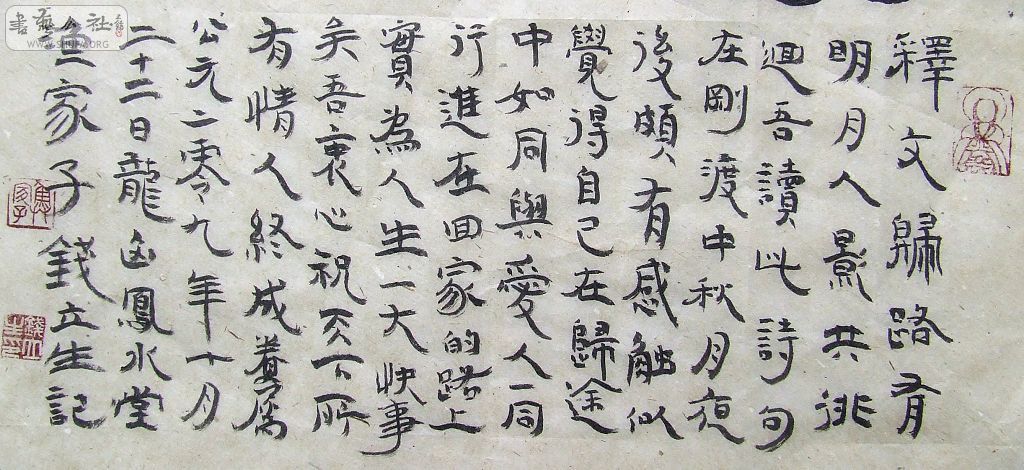 釋文歸路有
明月人影共徘
迴吾讀此詩句
在剛渡中秋月夜
後頗有感觸似
覺得自己在歸途
中如同與愛人一同
行進在回家的路上
實為人生一大快事
矣吾衷心祝天下所
有情人終成眷屬
公元二零々九年十月
二十二日龍鳳水堂
家子錢立生記
書藝公社
WWW.SHUFA.ORG